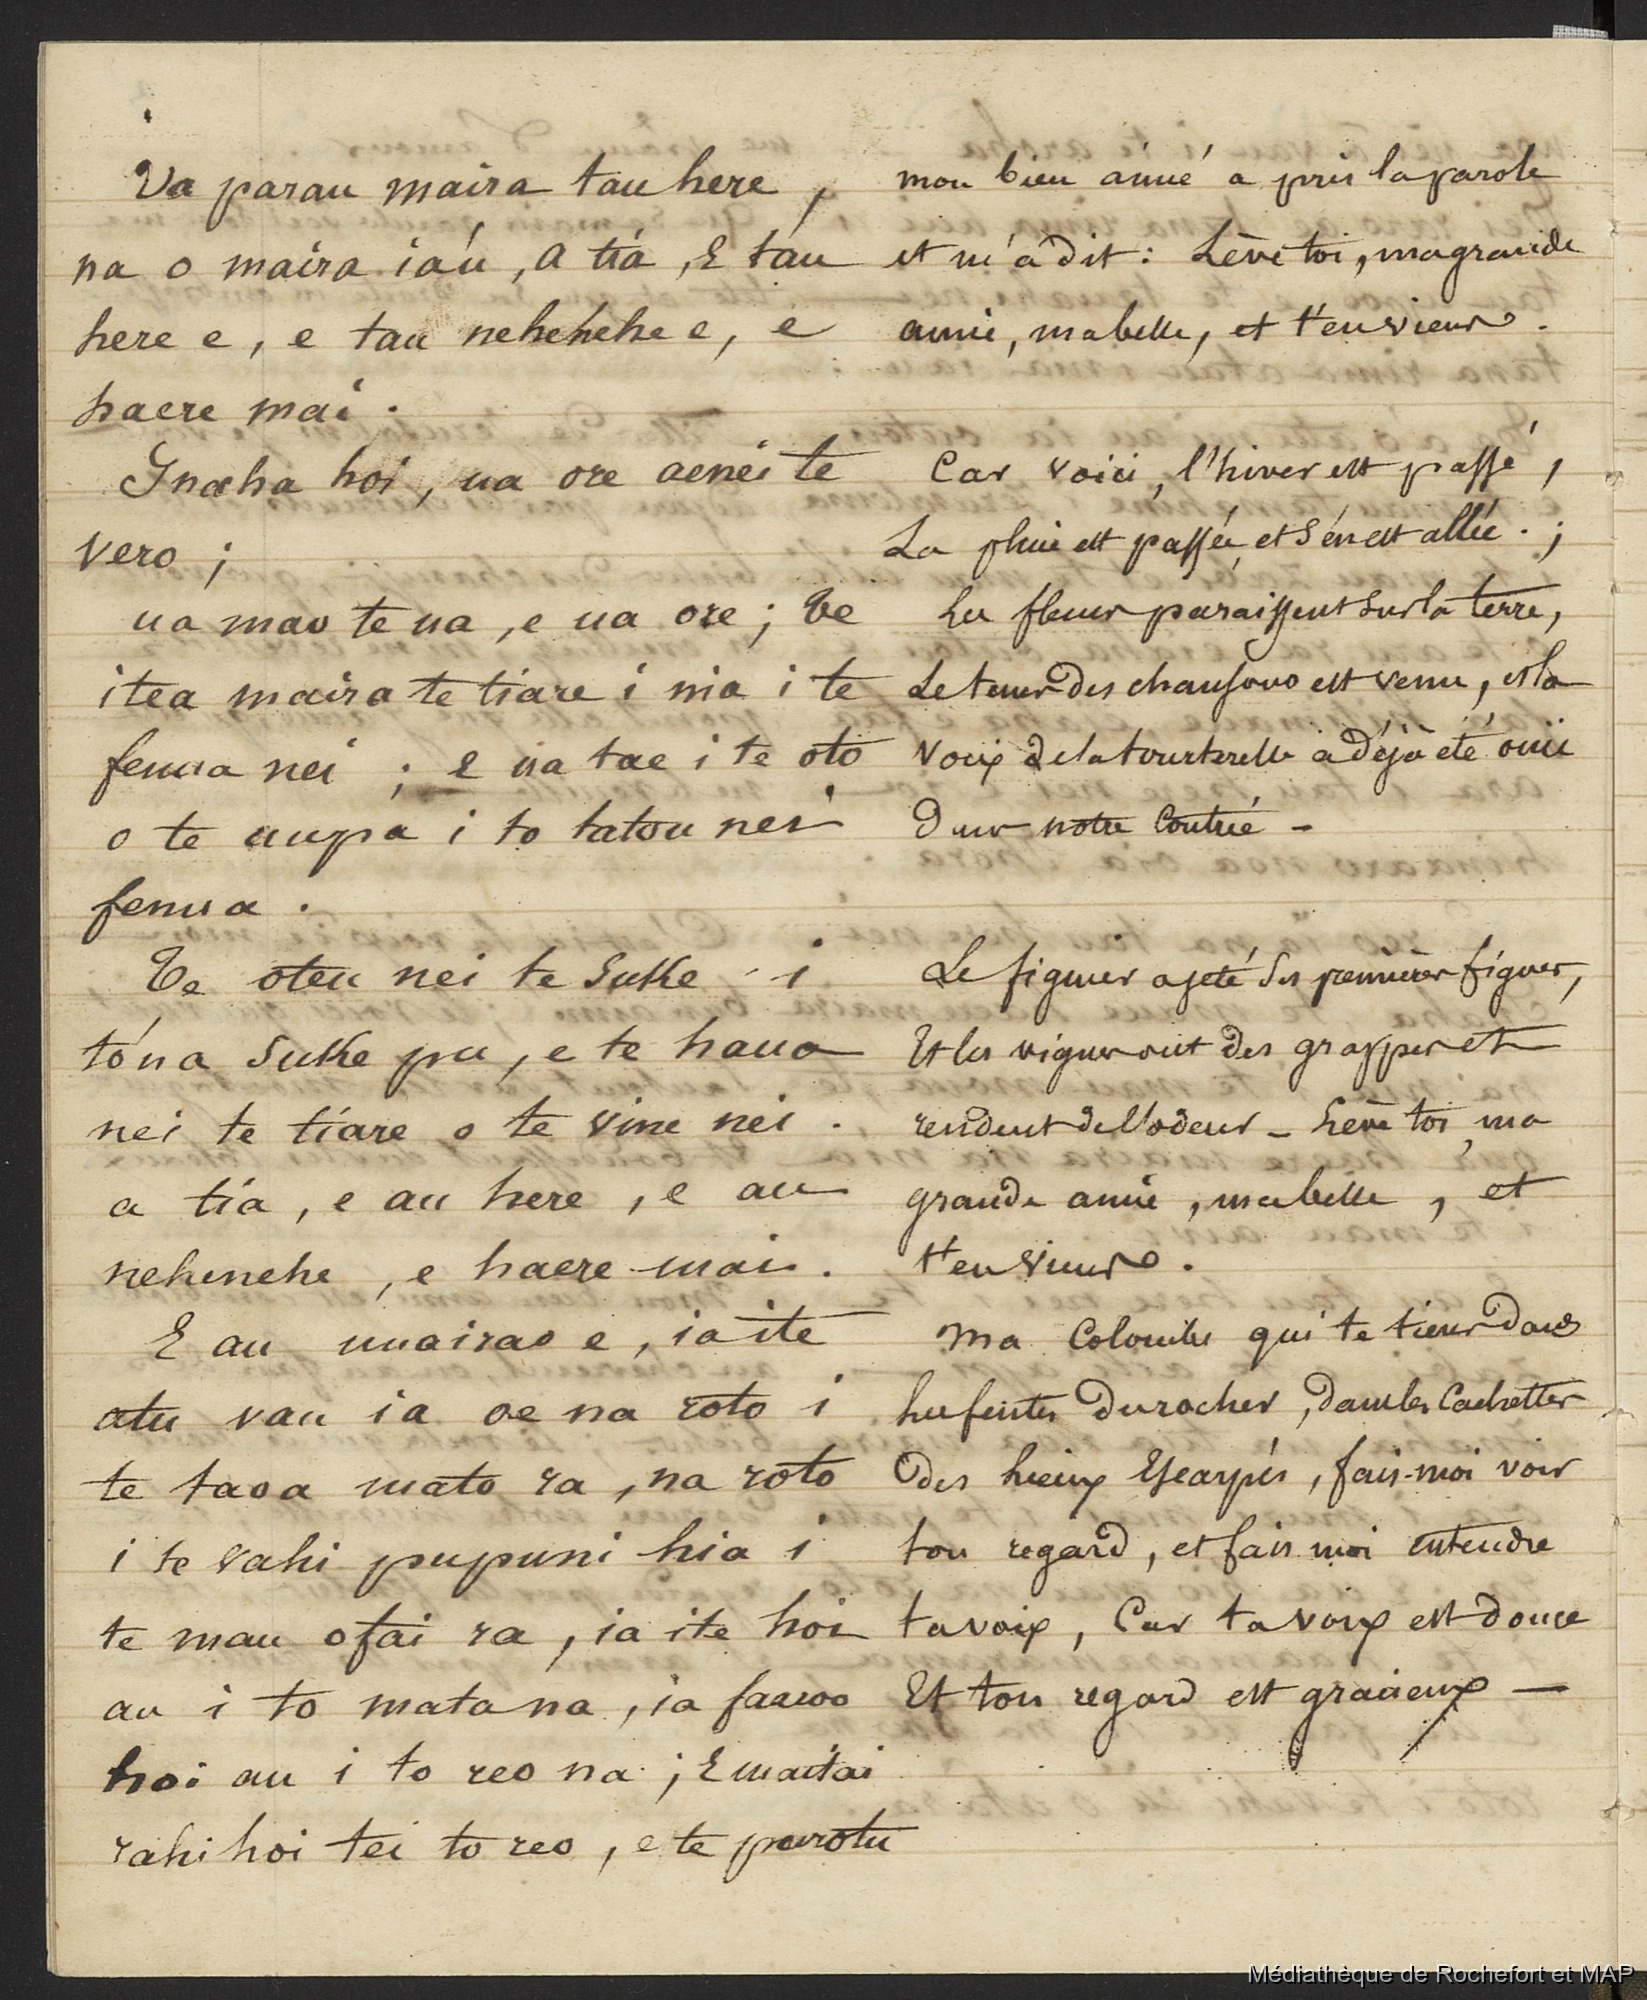 Va parau maira tau here,
na o maira iáu, A tiá, E táu
here e, e tau nehenehe e, e
haere mai.
Inaha hoi, ua ore aenei te
vero ;
ua mao te ua, e ua ore ; Te
itea maira te tiare i nia i te
fenua nei ; e ua tae i te oto
o te uupa i to tatou nei
fenua.
Te oteu nei te Suke i
tóna Suke pu, e te haua
nei te tiare o te vine nei.
a tia, e au here, e au
nehenehe, e haere mai.
E au uuairao e, ia ite
atu vau ia oe na roto i
te taoa mato ra, na roto
i te vahi pupuni hia i
te mau ofai ra, ia ite hoi
au i to mata na, ia faaroo
hoi au i to reo na ; E maitai
rahi hoi tei to reo, e te purotu
mon bien aimé a pris la parole
et m'a dit : Lève toi, ma grande
amie, ma belle, et t'en viens.
Car voici, l'hiver est passé,
La pluie est passée, et s'en est allée. ;
Les fleurs paraissent sur la terre,
Le temps des chansons est venu, et la
voix de la tourterelle a déjà été ouïe
dans notre Contrée -
Le figuier a jeté ses premières figues,
Et les vignes ont des grappes et
rendent de l'odeur - Lève toi, ma
grande amie, ma belle, et
t'en viens.
Ma Colombe qui te tiens dans
les fentes du rocher, dans les Cachettes
des lieux Escarpés, fais-moi voir
ton regard, et fais moi entendre
ta voix, Car ta voix est douce
Et ton regard est gracieux —
Médiathèque de Rochefort et MAP